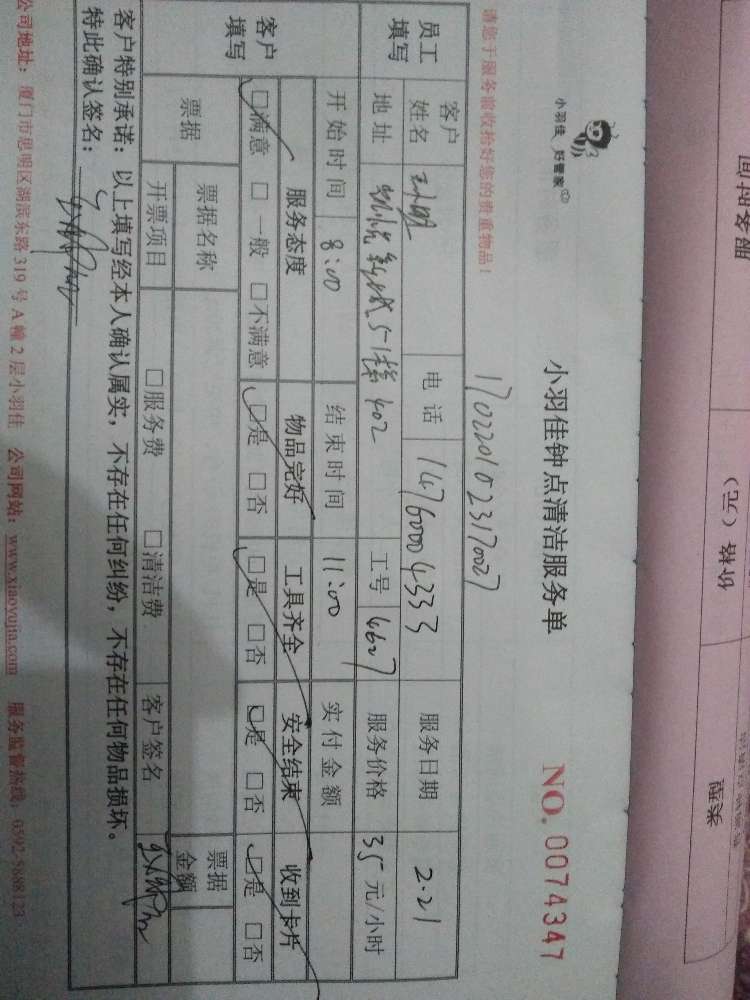 小羽佳 好管家
小羽佳钟点清洁服务单
NO. 0074347
请您于服务前收拾好您的贵重物品！
1702201023170027
员工填写
客户姓名 电话 14760004333 服务日期 2.21
地址 5-1梯402 工号 4607 服务价格 35元/小时
开始时间 8:00 结束时间 11:00 实付金额
客户填写
服务态度 物品完好 工具齐全 安全结束 收到卡片
□满意 □一般 □不满意 □是 □否 □是 □否 □是 □否 □是 □否
票据 票据名称 票据金额
开票项目 □服务费 □清洁费 客户签名
客户特别承诺：以上填写经本人确认属实，不存在任何纠纷，不存在任何物品损坏。
特此确认签名：
公司地址：厦门市思明区湖滨东路319号A幢2层小羽佳 公司网站：www.xiaoyujia.com 服务监督热线：0592-5888123
服务时间
价格（元）
菜篮